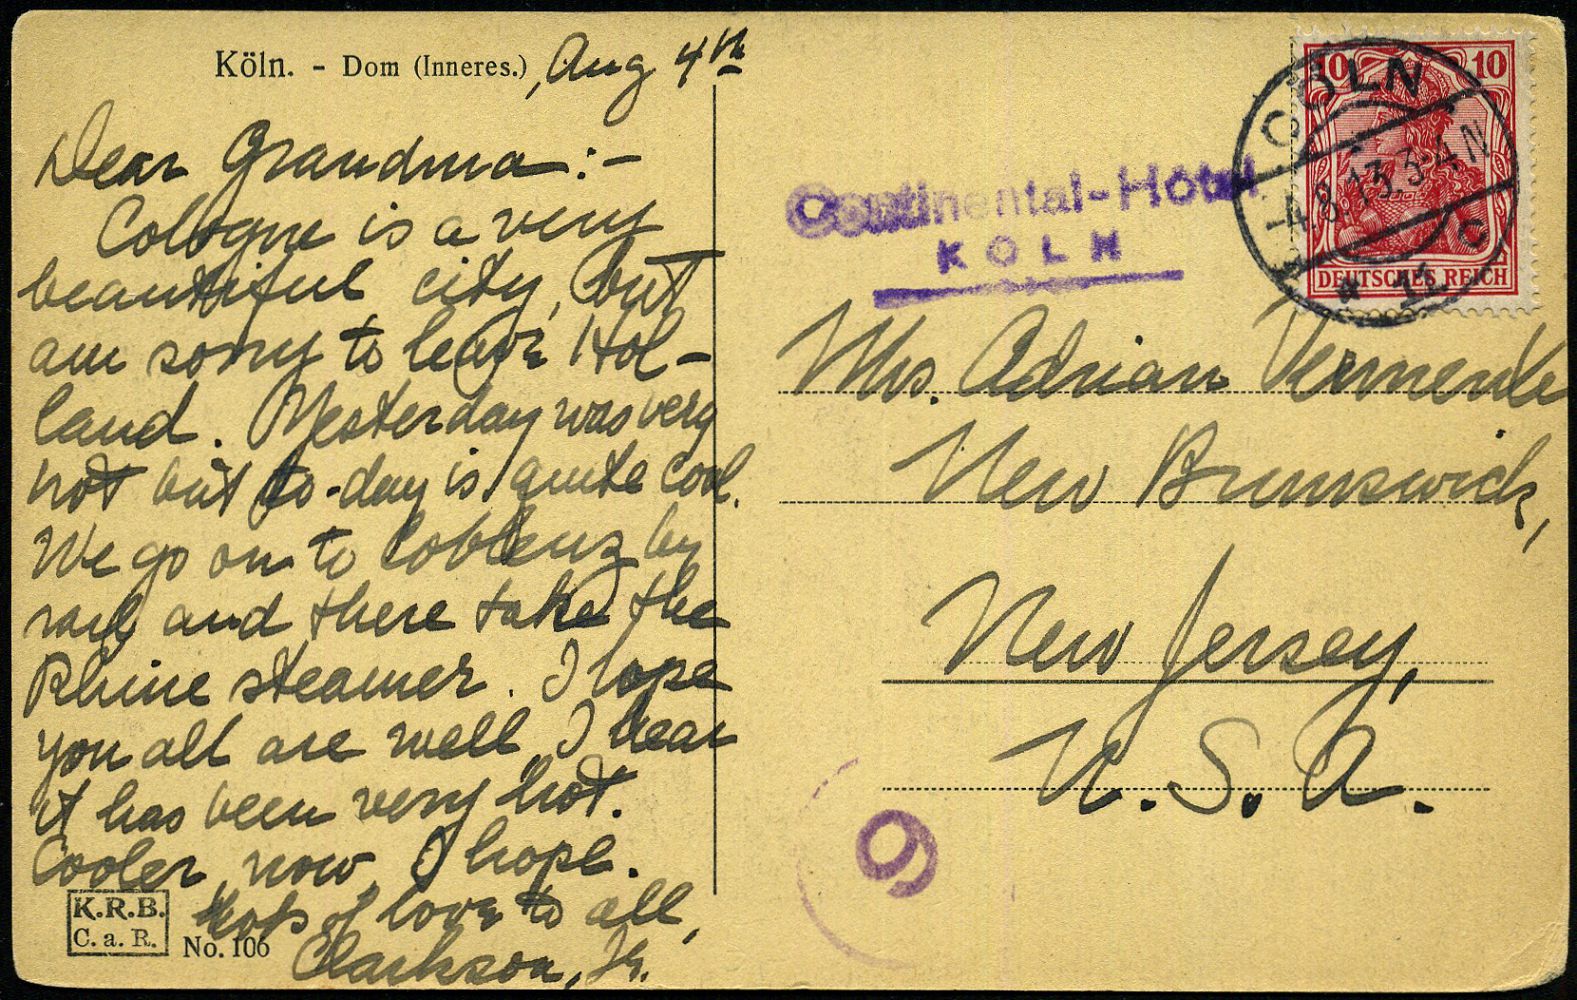 Köln. - Dom (Inneres.), Aug 4th
Dear Grandma:-
Cologne is a very
beautiful city, but
am sorry to leave Hol-
land. Yesterday was very
hot but to-day is quite cool.
We go on to Coblenz by
rail and there take the
Rhine steamer. I hope
you all are well. I hear
it has been very hot.
Cooler now, I hope.
of love to all,
Clarkson, Jr.
K.R.B.
C. a. R.
No. 106
Continental-Hotel
KÖLN
10 10
DEUTSCHES REICH
CÖLN
-4.8.13.3-4N
* 11 c
Mrs. Adrian Vermeule
New Brunswick,
New Jersey,
U.S.A.
9